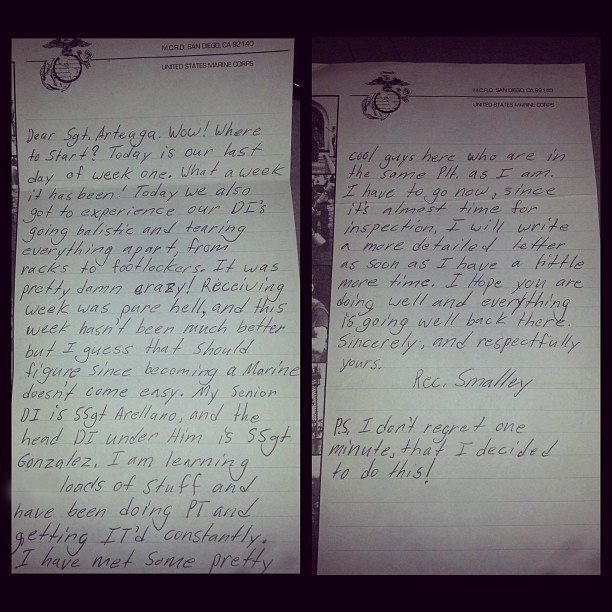 M.C.R.D. SAN DIEGO, CA 92140
UNITED STATES MARINE CORPS
Dear Sgt. Arteaga. Wow! Where
to Start? Today is our last
day of week one. What a week
it has been! Today we also
got to experience our DI's
going balistic and tearing
everything apart, from
racks to footlockers. It was
pretty damn crazy! Receiving
week was pure hell, and this
week hasn't been much better
but I guess that should
figure since becoming a Marine
doesn't come easy. My Senior
DI is SSgt Arellano, and the
head DI under Him is SSgt
Gonzalez. I am learning
loads of stuff and
have been doing PT and
getting IT'd constantly.
I have met some pretty
M.C.R.D. SAN DIEGO, CA 92140
UNITED STATES MARINE CORPS
cool guys here who are in
the same Plt. as I am.
I have to go now, since
it's almost time for
inspection. I will write
a more detailed letter
as soon as I have a little
more time. I Hope you are
doing well and everything
is going well back there.
Sincerely, and respectfully
yours.
Rec. Smalley
P.S. I don't regret one
minute, that I decided
to do this!